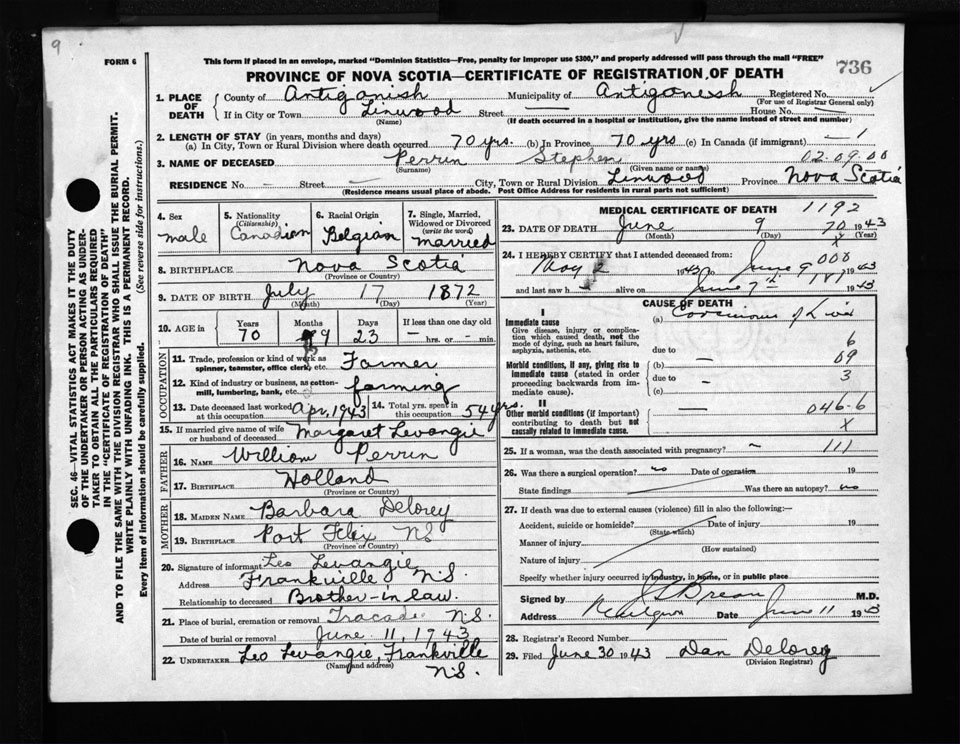 9
FORM 6
This form if placed in an envelope, marked "Dominion Statistics—Free, penalty for improper use $300," and properly addressed will pass through the mail "FREE"
PROVINCE OF NOVA SCOTIA—CERTIFICATE OF REGISTRATION OF DEATH 736
SEC. 46—VITAL STATISTICS ACT MAKES IT THE DUTY
OF THE UNDERTAKER OR PERSON ACTING AS UNDER-
TAKER TO OBTAIN ALL THE PARTICULARS REQUIRED
IN THE "CERTIFICATE OF REGISTRATION OF DEATH"
AND TO FILE THE SAME WITH THE DIVISION REGISTRAR WHO SHALL ISSUE THE BURIAL PERMIT.
WRITE PLAINLY WITH UNFADING INK. THIS IS A PERMANENT RECORD.
Every item of information should be carefully supplied. (See reverse side for instructions.)
1. PLACE OF DEATH
County of Antigonish Municipality of Antigonish Registered No.
(For use of Registrar General only)
If in City or Town Linwood Street — House No. —
(Name) (If death occurred in a hospital or institution, give the name instead of street and number)
2. LENGTH OF STAY (in years, months and days)
(a) In City, Town or Rural Division where death occurred 70 yrs. (b) In Province 70 yrs (c) In Canada (if immigrant) — 1
3. NAME OF DECEASED Perrin Stephen 02-09-00
(Surname) (Given name or names)
RESIDENCE No. — Street — City, Town or Rural Division Linwood Province Nova Scotia
(Residence means usual place of abode. Post Office Address for residents in rural parts not sufficient)
4. Sex male
5. Nationality (Citizenship) Canadian
6. Racial Origin Belgian
7. Single, Married, Widowed or Divorced (write the word) married
8. BIRTHPLACE Nova Scotia
(Province or Country)
9. DATE OF BIRTH July 17 1872
(Month) (Day) (Year)
10. AGE in Years Months Days If less than one day old
70 23 — hrs. or — min.
OCCUPATION
11. Trade, profession or kind of work as spinner, teamster, office clerk, etc. Farmer
12. Kind of industry or business, as cotton-mill, lumbering, bank, etc. farming
13. Date deceased last worked at this occupation Apr, 1943 14. Total yrs. spent in this occupation 54 yrs.
15. If married give name of wife or husband of deceased Margaret Levangie
FATHER
16. NAME William Perrin
17. BIRTHPLACE Holland
(Province or Country)
MOTHER
18. MAIDEN NAME Barbara Delorey
19. BIRTHPLACE Port Felix NS
(Province or Country)
20. Signature of informant Leo Levangie
Address Frankville N.S.
Relationship to deceased Brother-in law.
21. Place of burial, cremation or removal Tracadie N.S.
Date of burial or removal June 11, 1943
22. UNDERTAKER Leo Levangie, Frankville N.S.
(Name and address)
MEDICAL CERTIFICATE OF DEATH 1192
23. DATE OF DEATH June 9 70 1943
(Month) (Day) X (Year)
24. I HEREBY CERTIFY that I attended deceased from: 000
May 2 1943 to June 9 1943
and last saw h alive on June 7th 1943
CAUSE OF DEATH
I
Immediate cause
Give disease, injury or complication which caused death, not the mode of dying, such as heart failure, asphyxia, asthenia, etc.
(a)
due to 6
Morbid conditions, if any, giving rise to immediate cause (stated in order proceeding backwards from immediate cause).
(b) — 09
due to — 3
(c)
II
Other morbid conditions (if important) contributing to death but not causally related to immediate cause.
— 046-6
X
25. If a woman, was the death associated with pregnancy? — 111
26. Was there a surgical operation? no Date of operation 19
State findings Was there an autopsy? no
27. If death was due to external causes (violence) fill in also the following:—
Accident, suicide or homicide? Date of injury 19
(State which)
Manner of injury
(How sustained)
Nature of injury
Specify whether injury occurred in industry, in home, or in public place
Signed by M.D.
Address Date June 11 1943
28. Registrar's Record Number
29. Filed June 30 1943 Dan Delorey
(Division Registrar)